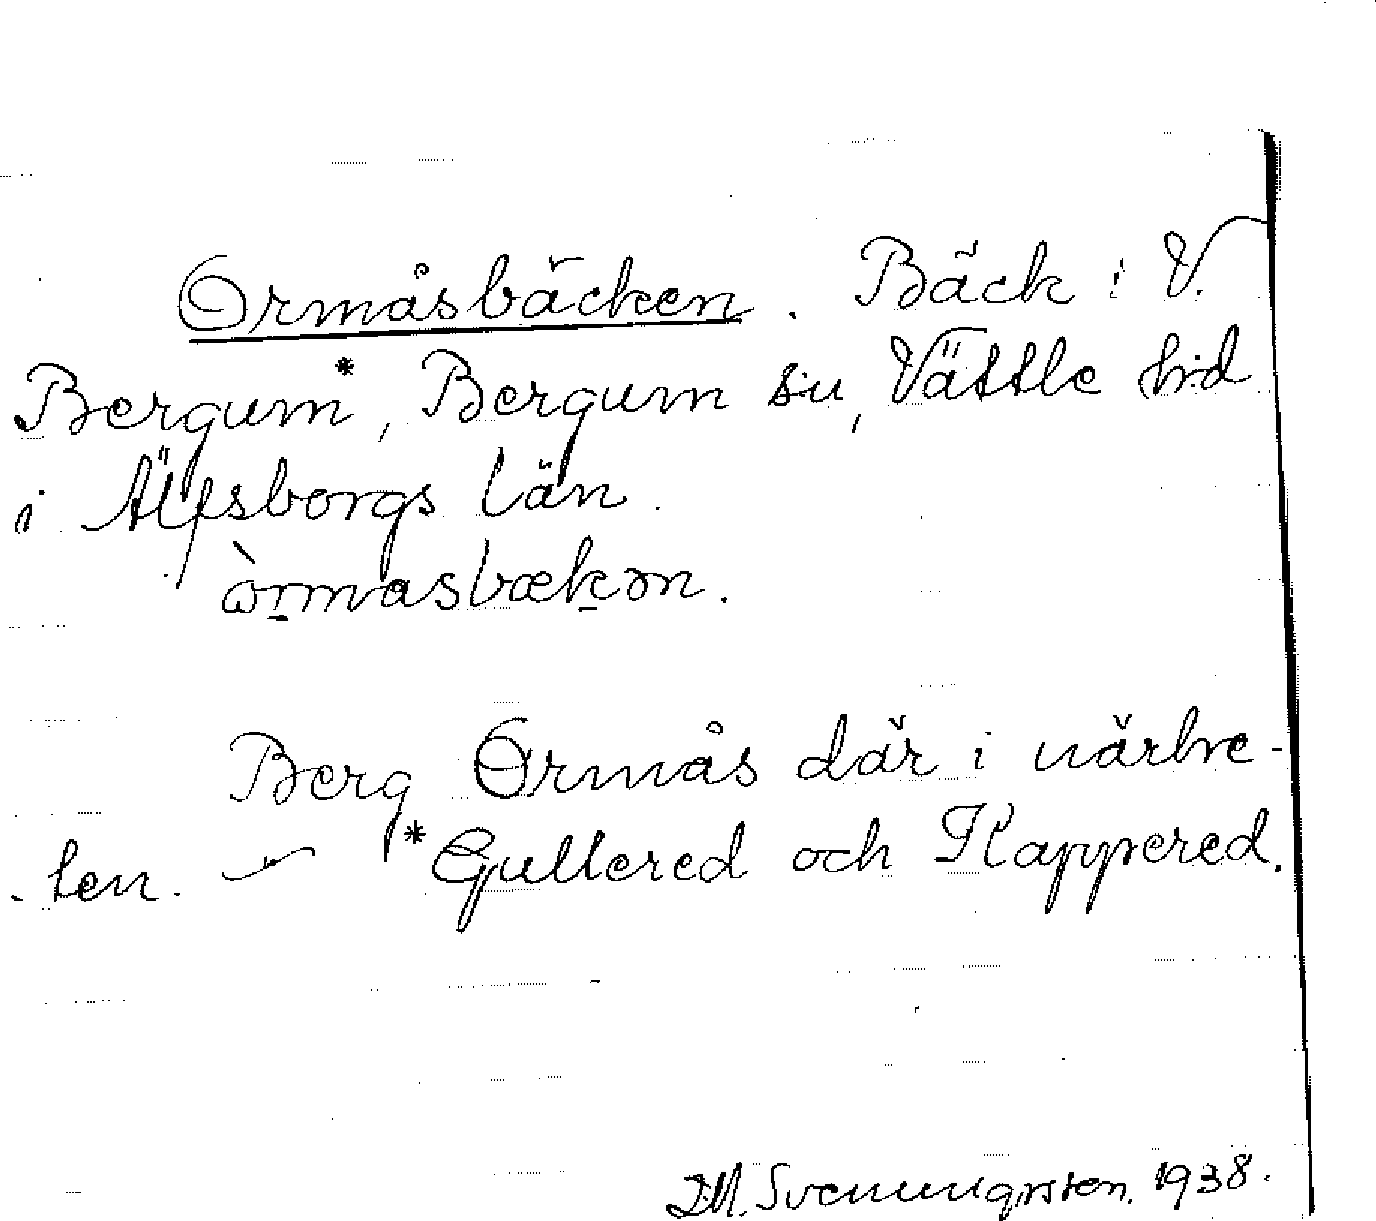 Ormåsbäcken. Bäck i V.
Bergum*, Bergum sn, Vättle hd
i Älfsborgs län.
òrmasbækən.
Berg Ormås där i närhe-
ten. — *Gullered och Kappered.
1938.